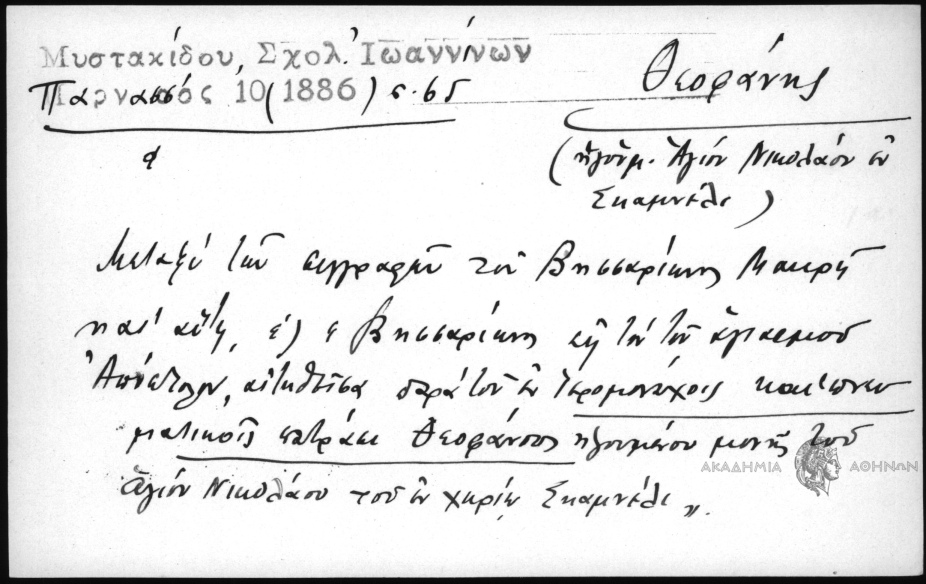 Μυστακίδου, Σχολ. Ἰωαννίνων
Παρνασσός 10 (1886) σ. 65
Θεοφάνης
(ἡγούμ. Ἁγίου Νικολάου ἐν
Σκαμνέλι)
Μεταξύ τῶν συγγραφῶν τοῦ Βησσαρίωνος Μακρῆ
καί αὕτη, Βησσαρίωνος εἰς τόν τοῦ ἁγιασμοῦ
Ἀπόστολον, αἰτηθεῖσα παρά τοῦ ἐν Ἱερομονάχοις καί πνευ
ματικοῖς πατράσι Θεοφάνους ἡγουμένου μονῆς τοῦ
Ἁγίου Νικολάου τοῦ ἐν χωρίῳ Σκαμνέλι".
ΑΚΑΔΗΜΙΑ ΑΘΗΝΩΝ